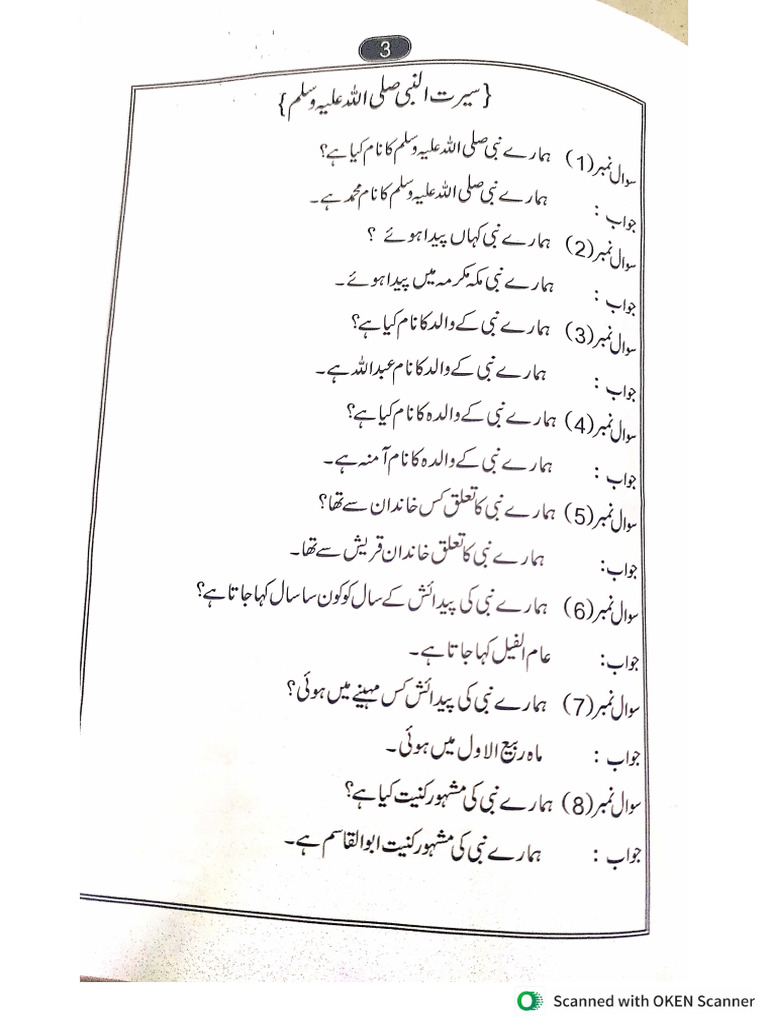 3
{سیرت النبی صلی اللہ علیہ وسلم}
سوال نمبر(1) ہمارے نبی صلی اللہ علیہ وسلم کا نام کیا ہے؟
جواب : ہمارے نبی صلی اللہ علیہ وسلم کا نام محمد ہے۔
سوال نمبر(2) ہمارے نبی کہاں پیدا ہوئے ؟
جواب : ہمارے نبی مکہ مکرمہ میں پیدا ہوئے ۔
سوال نمبر(3) ہمارے نبی کے والد کا نام کیا ہے؟
جواب : ہمارے نبی کے والد کا نام عبد اللہ ہے۔
سوال نمبر(4) ہمارے نبی کے والدہ کا نام کیا ہے؟
جواب : ہمارے نبی کے والدہ کا نام آمنہ ہے۔
سوال نمبر(5) ہمارے نبی کا تعلق کس خاندان سے تھا؟
جواب: ہمارے نبی کا تعلق خاندان قریش سے تھا۔
سوال نمبر(6) ہمارے نبی کی پیدائش کے سال کو کون سا سال کہا جاتا ہے؟
جواب: عام الفیل کہا جاتا ہے۔
سوال نمبر(7) ہمارے نبی کی پیدائش کس مہینے میں ہوئی؟
جواب : ماہ ربیع الاول میں ہوئی۔
سوال نمبر(8) ہمارے نبی کی مشہور کنیت کیا ہے؟
جواب : ہمارے نبی کی مشہور کنیت ابوالقاسم ہے۔
Scanned with OKEN Scanner